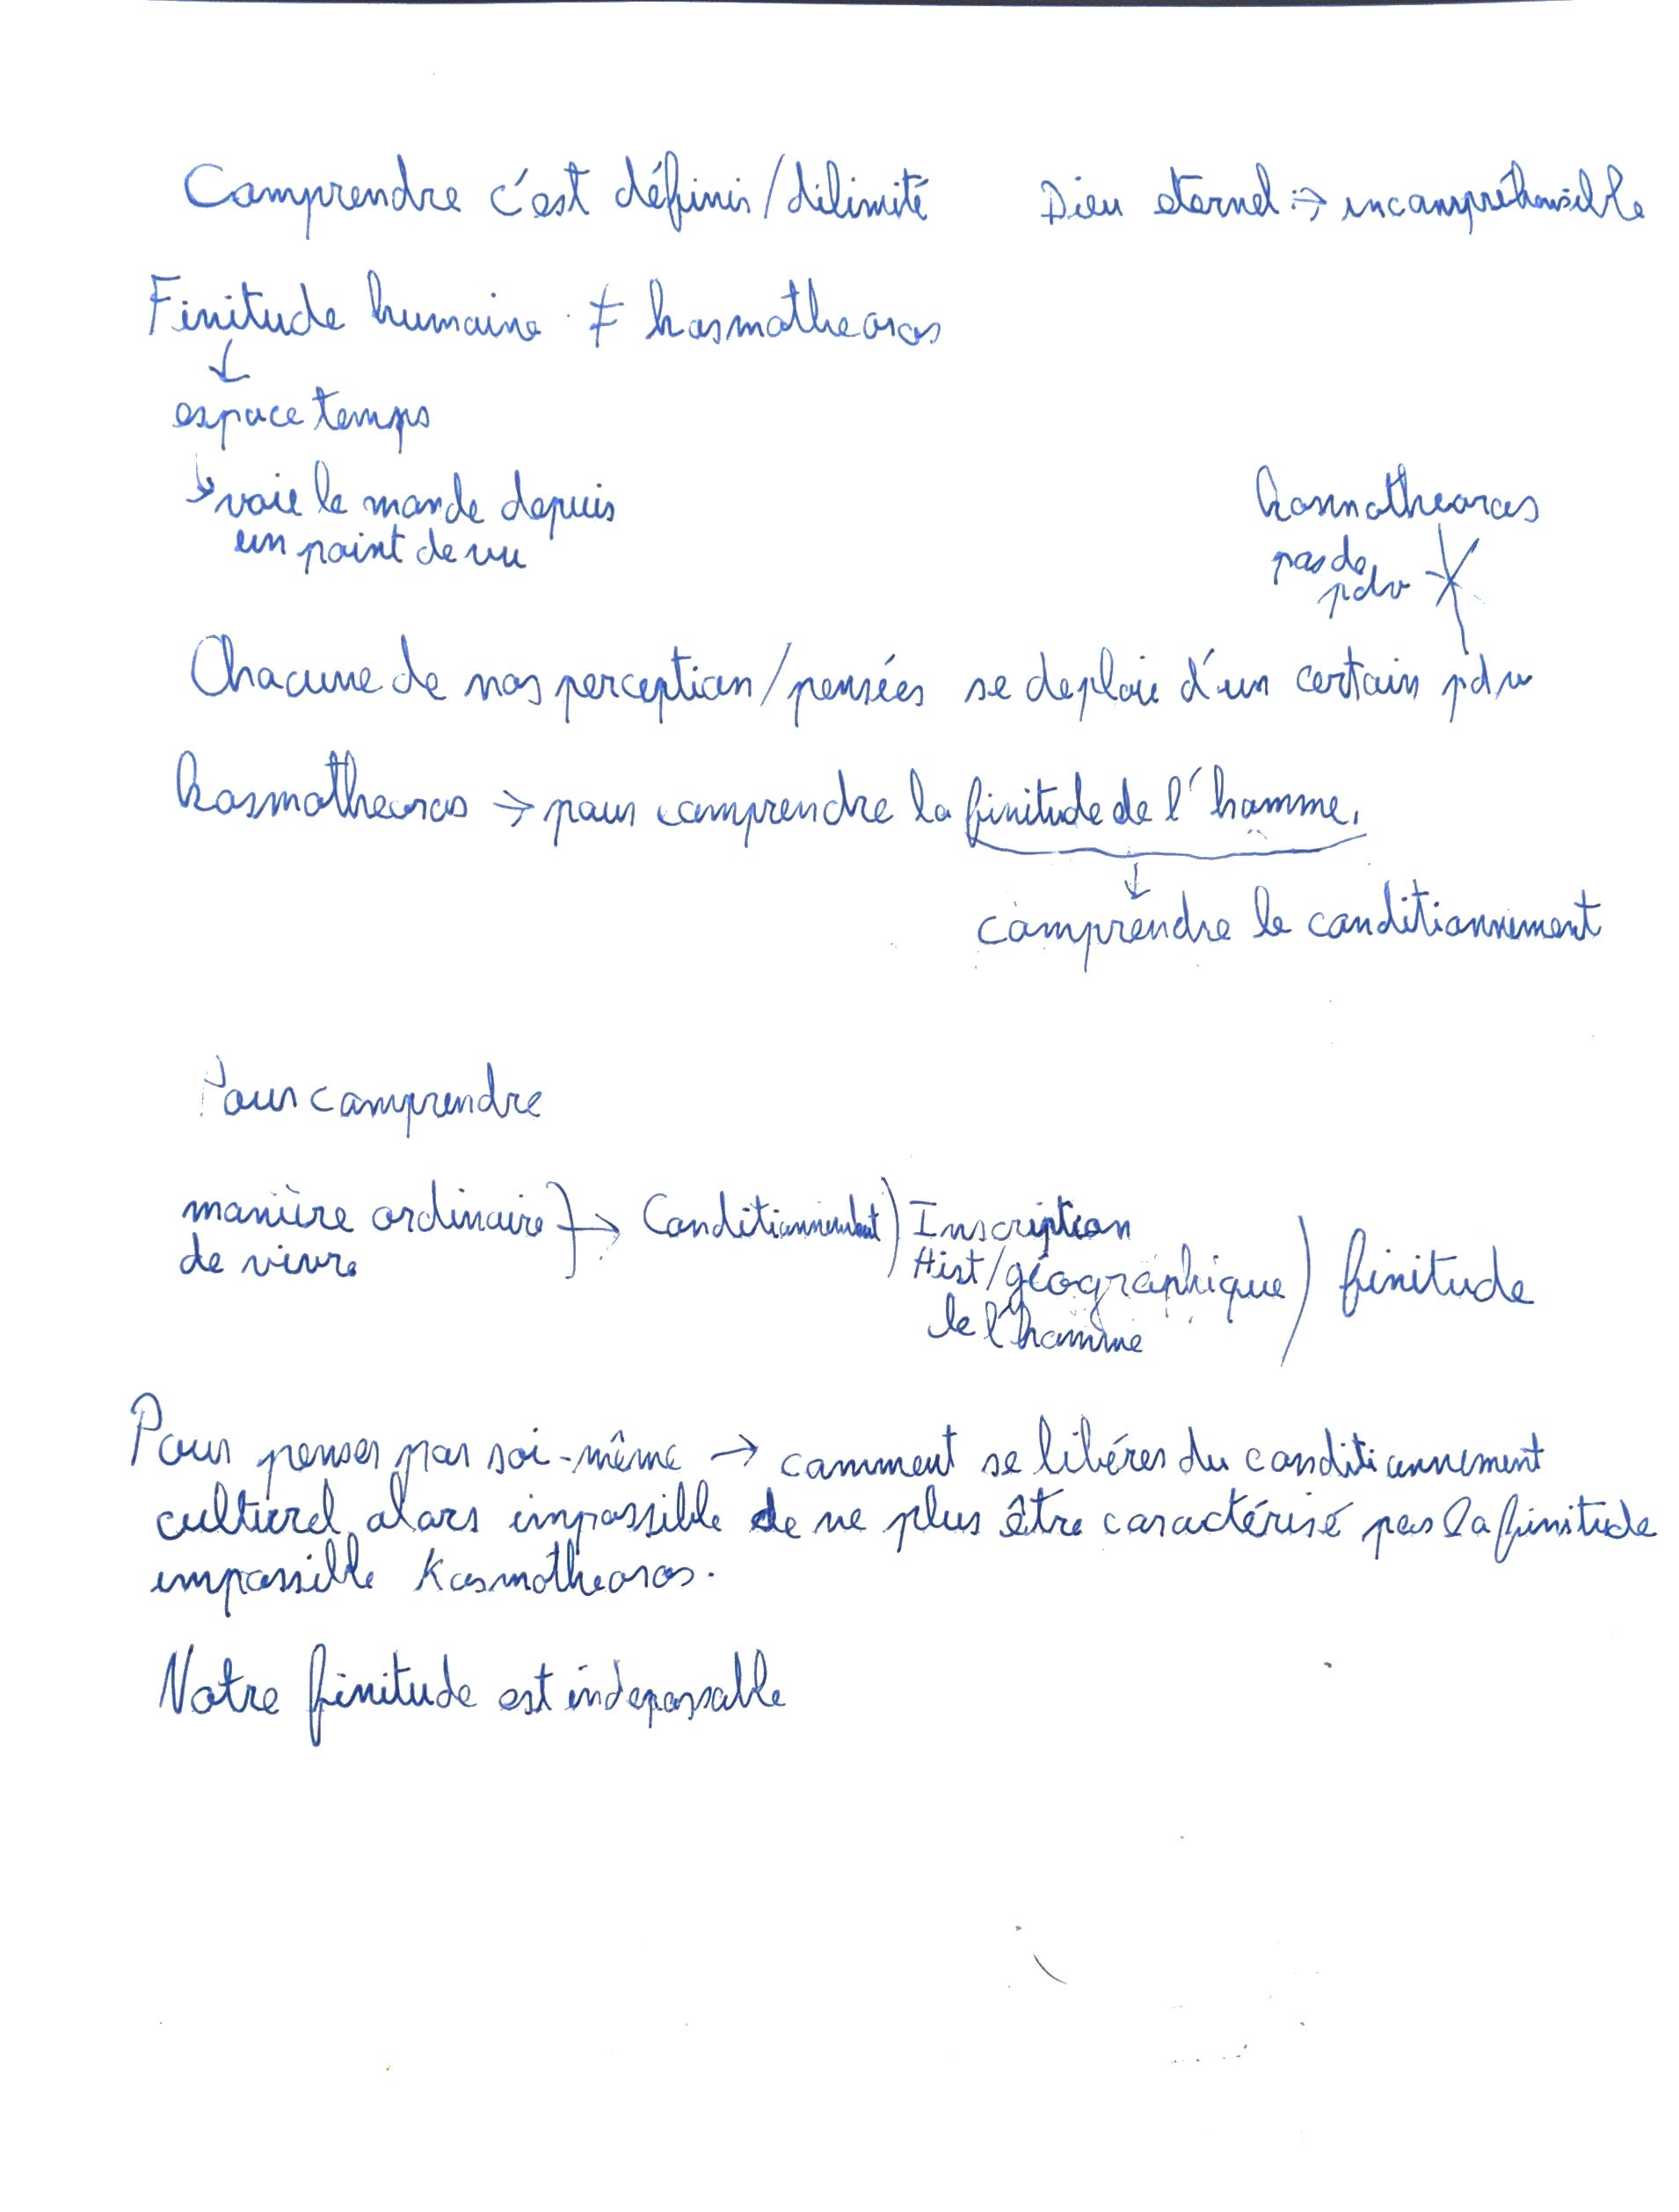 Comprendre c'est définir/délimité Dieu eternel => incompréhensible
Finitude humaine ≠ kosmotheoros
↓
espace temps
↳ voie le monde depuis
un point de vu
kosmotheoros
pas de
pdv
Chacune de nos perception/pensées se deploie d'un certain pdv
kosmotheoros → pour comprendre la finitude de l'homme.
↓
comprendre le conditionnement
Pour comprendre
manière ordinaire }→ Conditionnement) Inscription
de vivre
Hist/géographique) finitude
de l'homme
Pour penser par soi-même → comment se libérer du conditionnement
culturel, alors impossible de ne plus être caractérisé par la finitude
impossible Kosmotheoros.
Notre finitude est indepassable